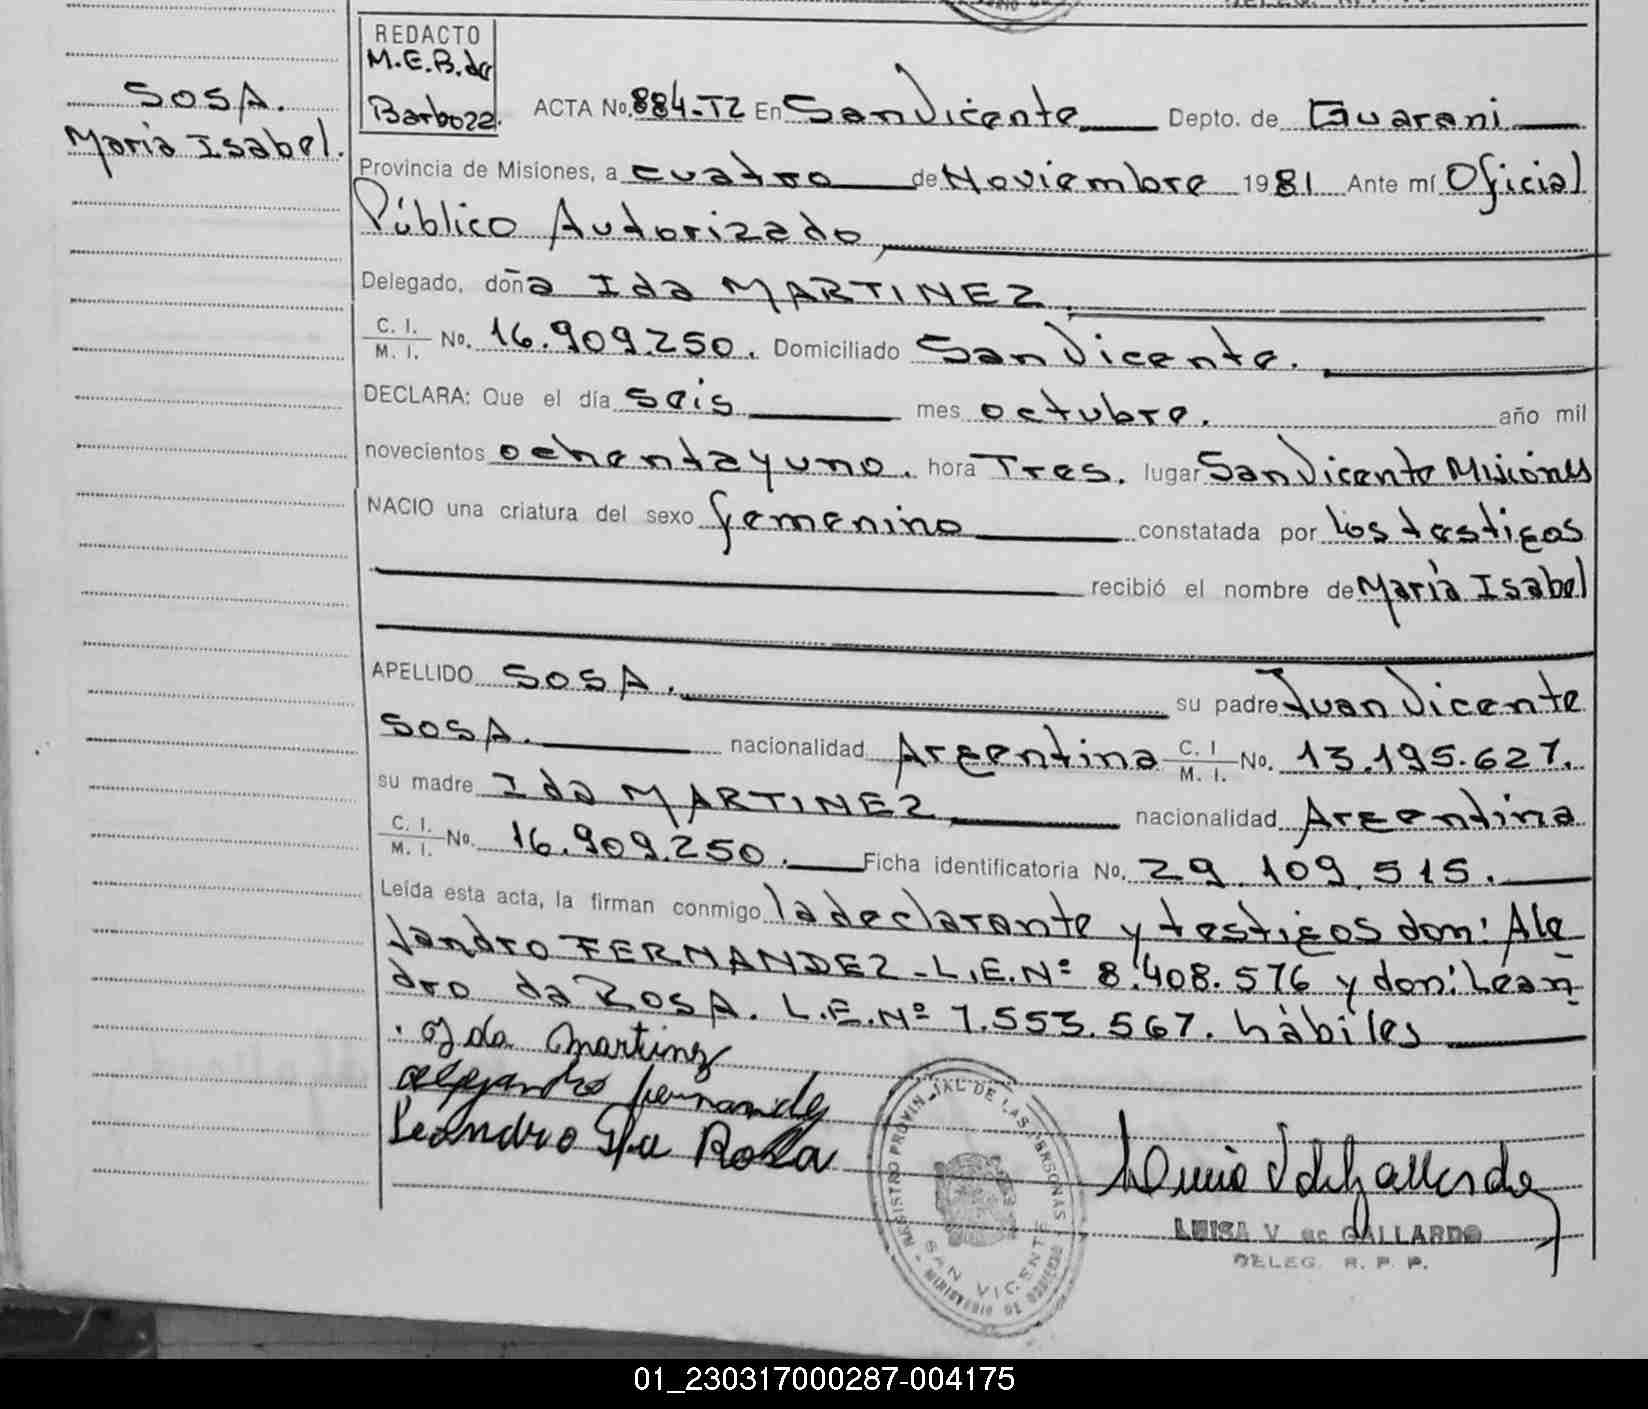 REDACTO
M.E.B. de
Barboza.
SOSA.
María Isabel.
ACTA No. 884-T2 En San Vicente Depto. de Guarani
Provincia de Misiones, a cuatro de Noviembre 1981 Ante mí Oficial
Público Autorizado,
Delegado, doña Ida MARTINEZ
C. I. / M. I. No. 16.909.250. Domiciliado San Vicente.
DECLARA: Que el día seis mes octubre. año mil
novecientos ochenta y uno. hora Tres. lugar San Vicente Misiones
NACIO una criatura del sexo femenino constatada por los testigos
recibió el nombre de María Isabel
APELLIDO SOSA. su padre Juan Vicente
SOSA. nacionalidad Argentina C. I / M. I. No. 13.195.627.
su madre Ida MARTINEZ nacionalidad Argentina
C. I. / M. I. No. 16.909.250. Ficha identificatoria No. 29.109.515.
Leída esta acta, la firman conmigo la declarante y testigos don: Ale
jandro FERNANDEZ - L.E.Nº 8.408.576 y don: Lean
dro da ROSA. L.E.Nº 7.553.567. hábiles
Ida Martinez
alejandro fernandez
Leandro Da Rosa
REGISTRO PROVINCIAL DE LAS PERSONAS
SAN VICENTE
MINISTERIO DE GOBIERNO
LUISA V de GALLARDO
DELEG. R. P. P.
01_230317000287-004175